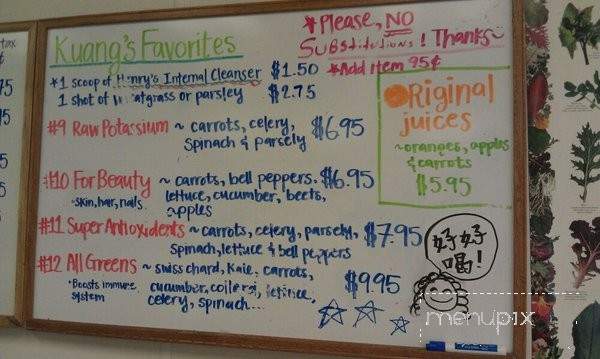 Kuang's Favorites
*Please, NO
Substitutions! Thanks~
*Add Item 95¢
*1 scoop of Henry's Internal Cleanser $1.50
1 shot of wheatgrass or parsley $2.75
#9 Raw Potassium ~ carrots, celery, $6.95
Spinach & parsely
#10 For Beauty ~ carrots, bell peppers. $6.95
*skin, hair, nails. lettuce, cucumber, beets,
apples
#11 Super Antioxidents ~ carrots, celery, parsely, $7.95
Spinach, lettuce & bell peppers
#12 All Greens ~ swiss chard, Kale, carrots, $9.95
*Boosts immune cucumber, collergi, lettuce,
system celery, spinach...
ORiginal
juices
~oranges, apples
& carrots
$5.95
好好
喝!
menupix
tax